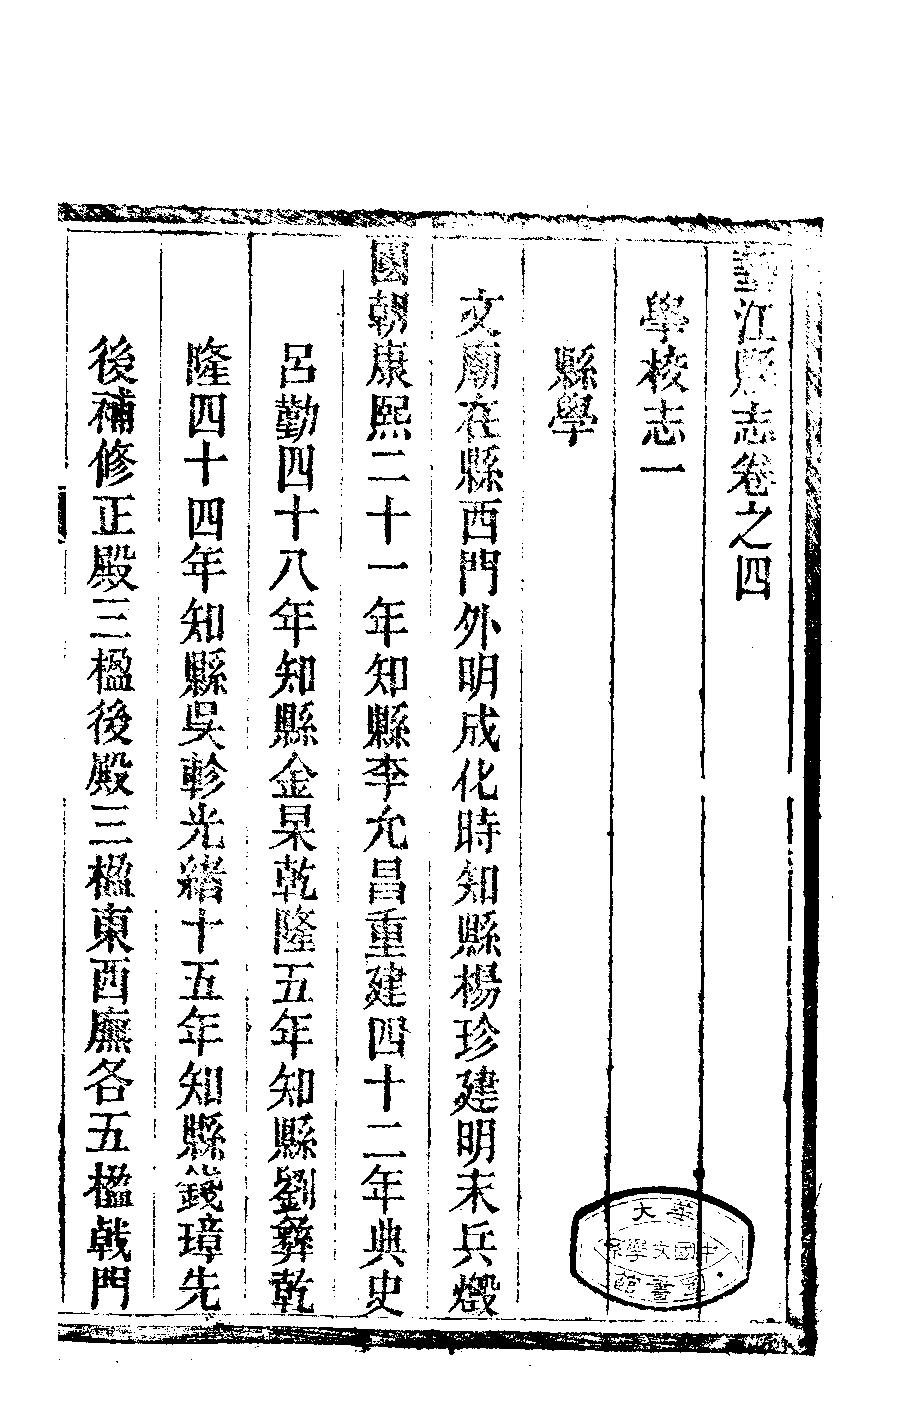 墊江縣志卷之四
學校志一
縣學
文廟在縣西門外明成化時知縣楊珍建明末兵燬
國朝康熙二十一年知縣李允昌重建四十二年典史
呂勤四十八年知縣金杲乾隆五年知縣劉彝乾
隆四十四年知縣吳軫光緒十五年知縣錢璋先
後補修正殿三楹後殿三楹東西廡各五楹戟門
華大
中國文學系
圖書館